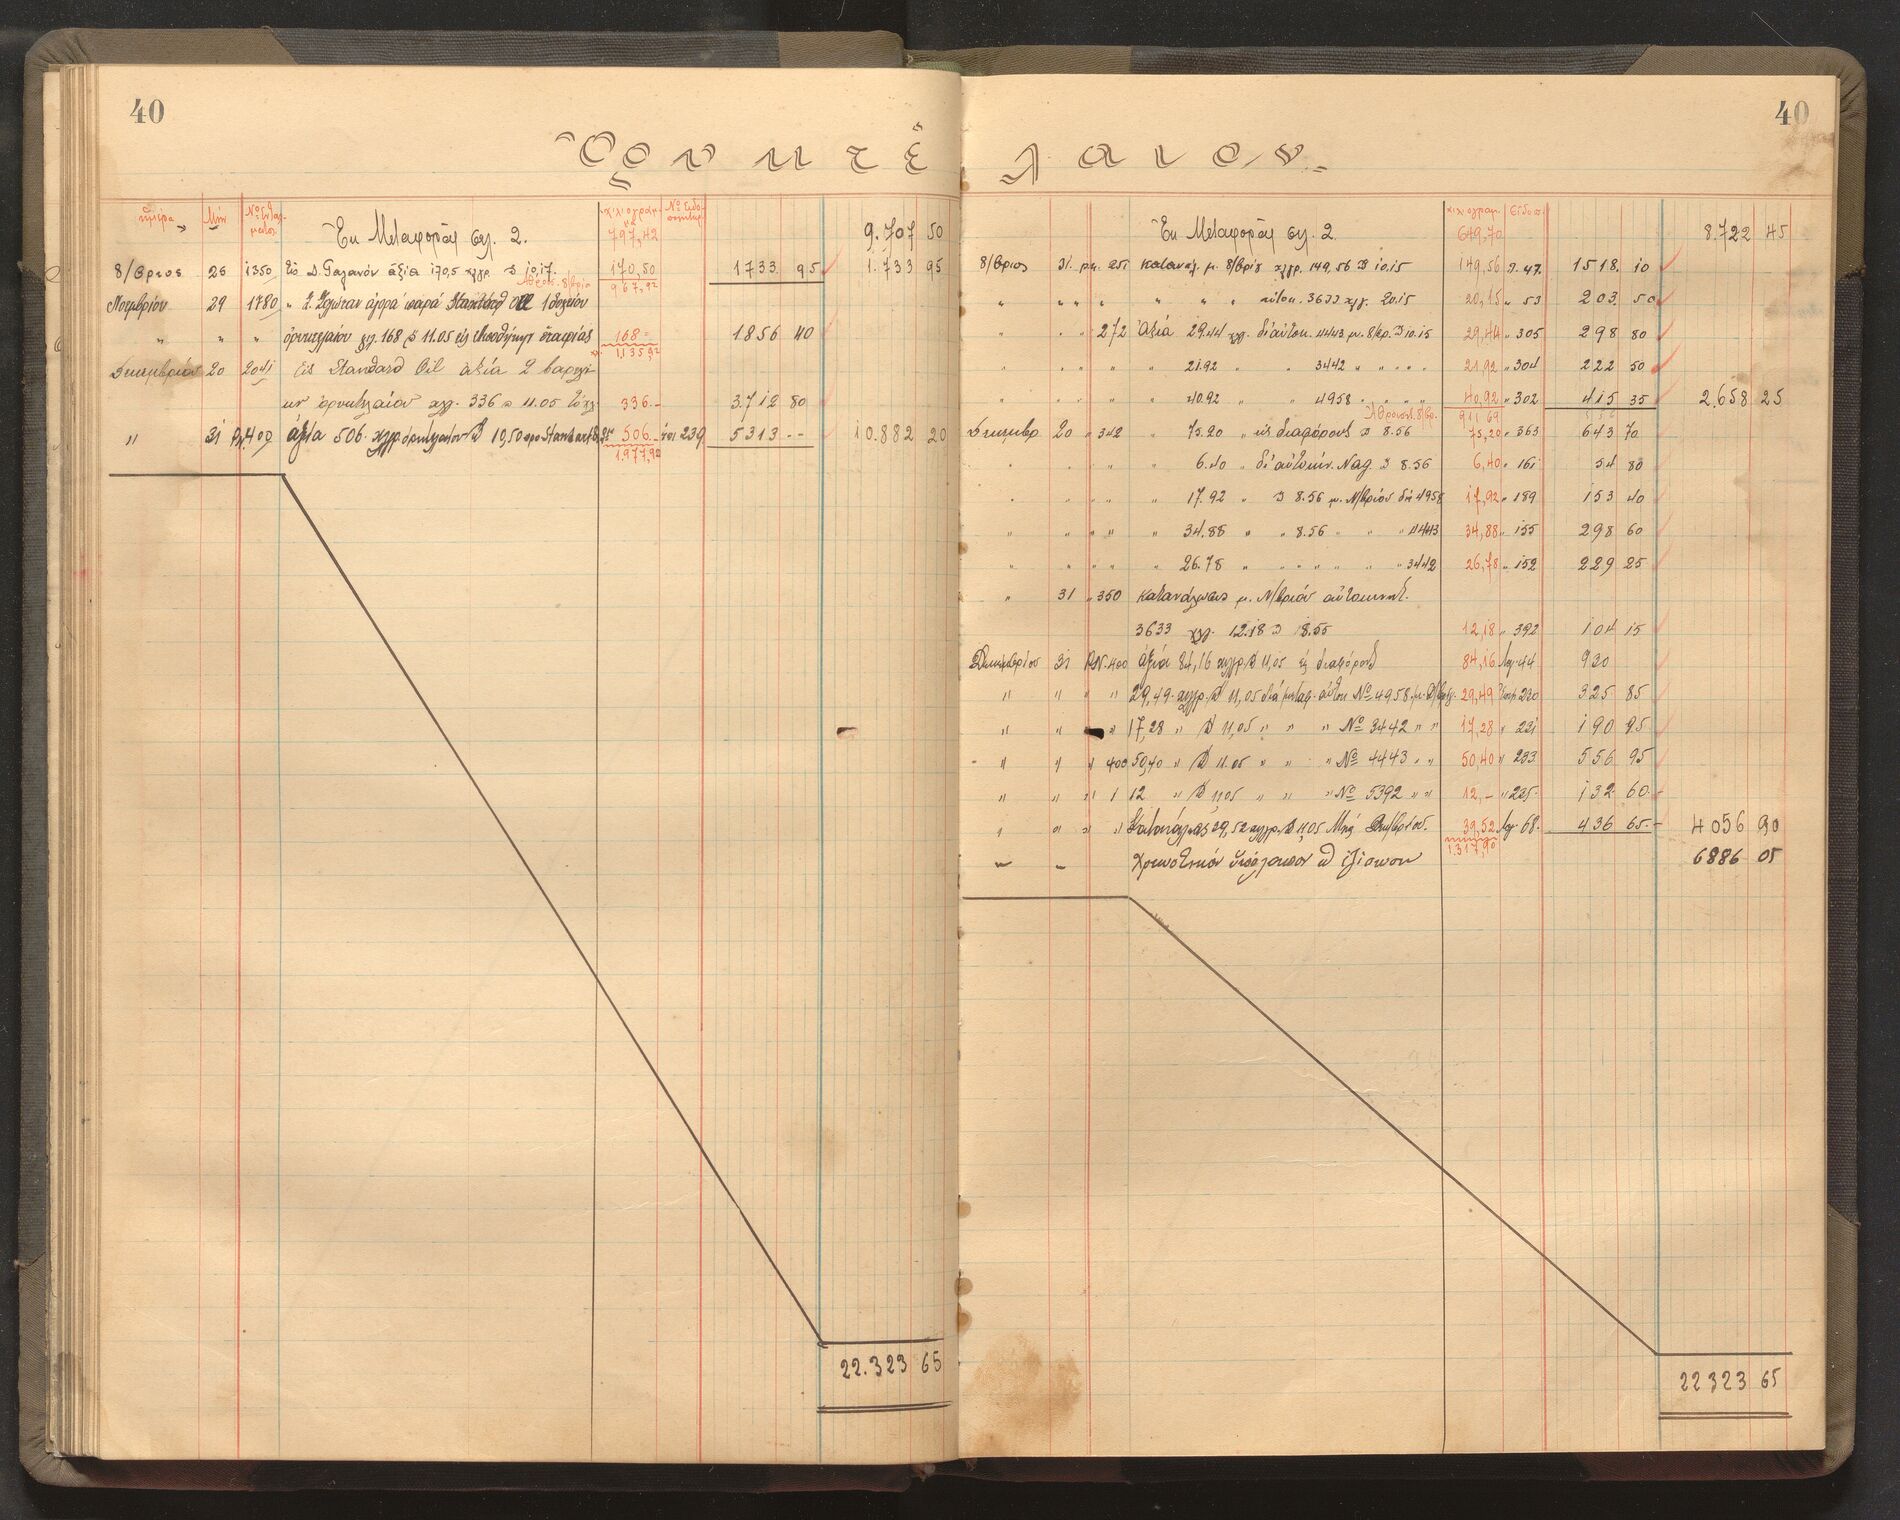 40
40
Ὀρυκτέλαιον
ἡμέρα Μήν Νο Ἐντάλματος χιλιόγραμ. Νο
Ἐκ Μεταφορᾶς σελ. 2. 797,42 9.707 50
8/βριος 26 1350 αξία 170,5 χλγρ. 10.17. 170,50 1733 95 1.733 95
967,92
Νοεμβρίου 29 1780 " παρὰ Standard Oil
" " " ὀρυκτελαίου χλ. 168 11.05 εἰς Ἀποθήκην ἑταιρίας 168= 1856 40
1.135,92
Δεκεμβρίου 20 2041 Εἰς Standard Oil ἀξία 2 βαρελι-
ων ὀρυκτελαίου χλγ. 336 11.05 336.- 3.712 80
" 31 400 ἀξία 506 χλγρ. ὀρυκτελαίου 10,50 506.- 239 5313 -- 10.882 20
1.977,92
22.323 65
χιλιογραμ.
Ἐκ Μεταφορᾶς σελ. 2 649,70 8.722 45
8/βριος 31 251 Καταναλ. μ. 8/βρίου χλγρ. 149,56 10.15 149,56 47 1518. 10
" " " " " " " αὐτοκ. 3633 χλγ. 20.15 20,15 " 53 203. 50
" " " 272 Ἀξία 29.44 χλγ. δι' αὐτοκ. 4443 μ. 8/βρ. 10.15 29,44 " 305 298 80
" " " " " 21.92 " " 3442 " " " " 21,92 " 304 222 50
" " " " " 40.92 " " 4958 " " " " 40,92 " 302 415 35 2.658 25
911 69
Δεκεμβρ 20 " 342 " 75.20 " εἰς διαφόρους 8.56 75,20 " 363 643 70
" " " " " 6.40 " δι' αὐτοκιν. 8.56 6,40 " 161 54 80
" " " " " 17.92 " 8.56 μ. Ν/βρίου διὰ 4958 17,92 " 189 153 40
" " " " " 34.88 " " 8.56 " " " 4443 34,88 " 155 298 60
" " " " " 26.78 " " " " " " " 3442 26,78 " 152 229 25
" 31 " 350 Κατανάλωσις μ. Ν/βρίου αὐτοκινητ.
3633 χλγ. 12.18 8.55 12,18 " 392 104 15
Δεκεμβρίου 31 400 ἀξία 84,16 χλγρ. 11,05 εἰς διαφόρους 84,16 44 930
" " " " 29,49 χλγρ. 11,05 Νο 4958 29,49 230 325 85
" " " " 17,28 " 11,05 " " " Νο 3442 " " 17,28 " 231 190 95
" " " 400 50,40 " 11.05 " " " Νο 4443 " " 50,40 " 233 556 95
" " " " 12 " 11,05 " " " Νο 5392 " " 12,- " 235 132 60
" " " " Κατανάλωσις 39,52 χλγρ. 11,05 39,52 68 436 65 4056 90
1.317,90
" " Χρεωστικὸν ὑπόλοιπον 6886 05
22323 65